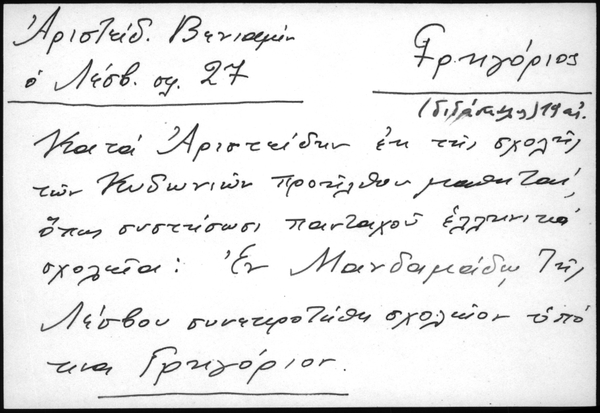 Ἀριστείδ. Βενιαμὶν
ὁ Λέσβ. σελ. 27
Γρηγόριος
(διδάσκαλος) 19 αἰ.
Κατὰ Ἀριστείδην ἐκ τῆς σχολῆς
τῶν Κυδωνιῶν προῆλθον μαθηταί,
ὅπως συστήσωσι πανταχοῦ ἑλληνικὰ
σχολεῖα: Ἐν Μανδαμάδῳ τῆς
Λέσβου συνεκροτήθη σχολεῖον ὑπό
τινα Γρηγόριον.